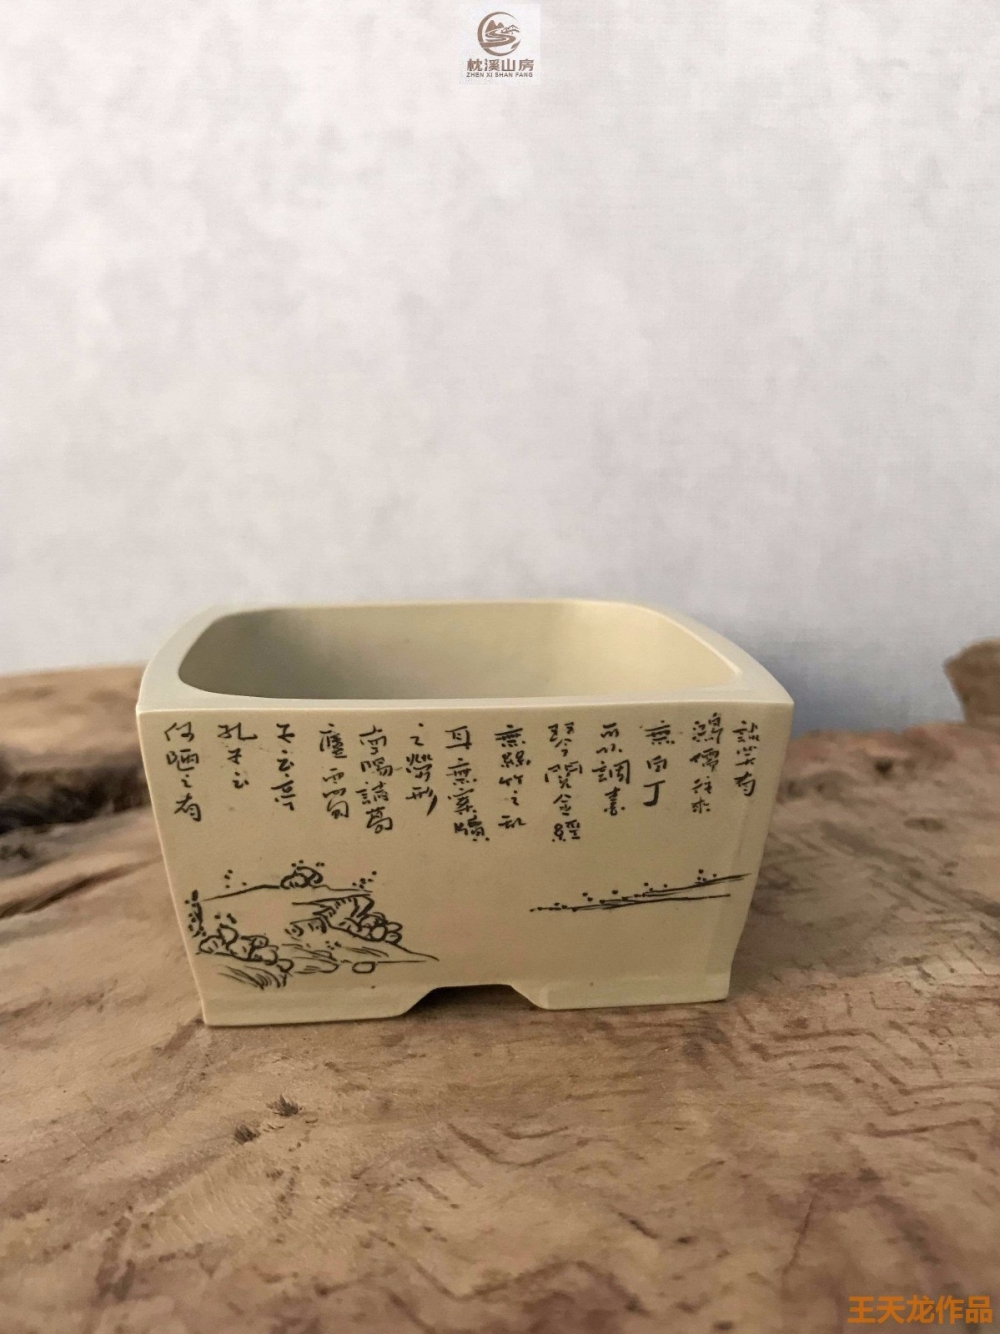 枕溪山房
ZHEN XI SHAN FANG
談笑有
鴻儒往来
無白丁
可以調素
琴閱金經
無絲竹之亂
耳無案牘
之勞形
南陽諸葛
廬西蜀
子云亭
孔子云
何陋之有
王天龙作品